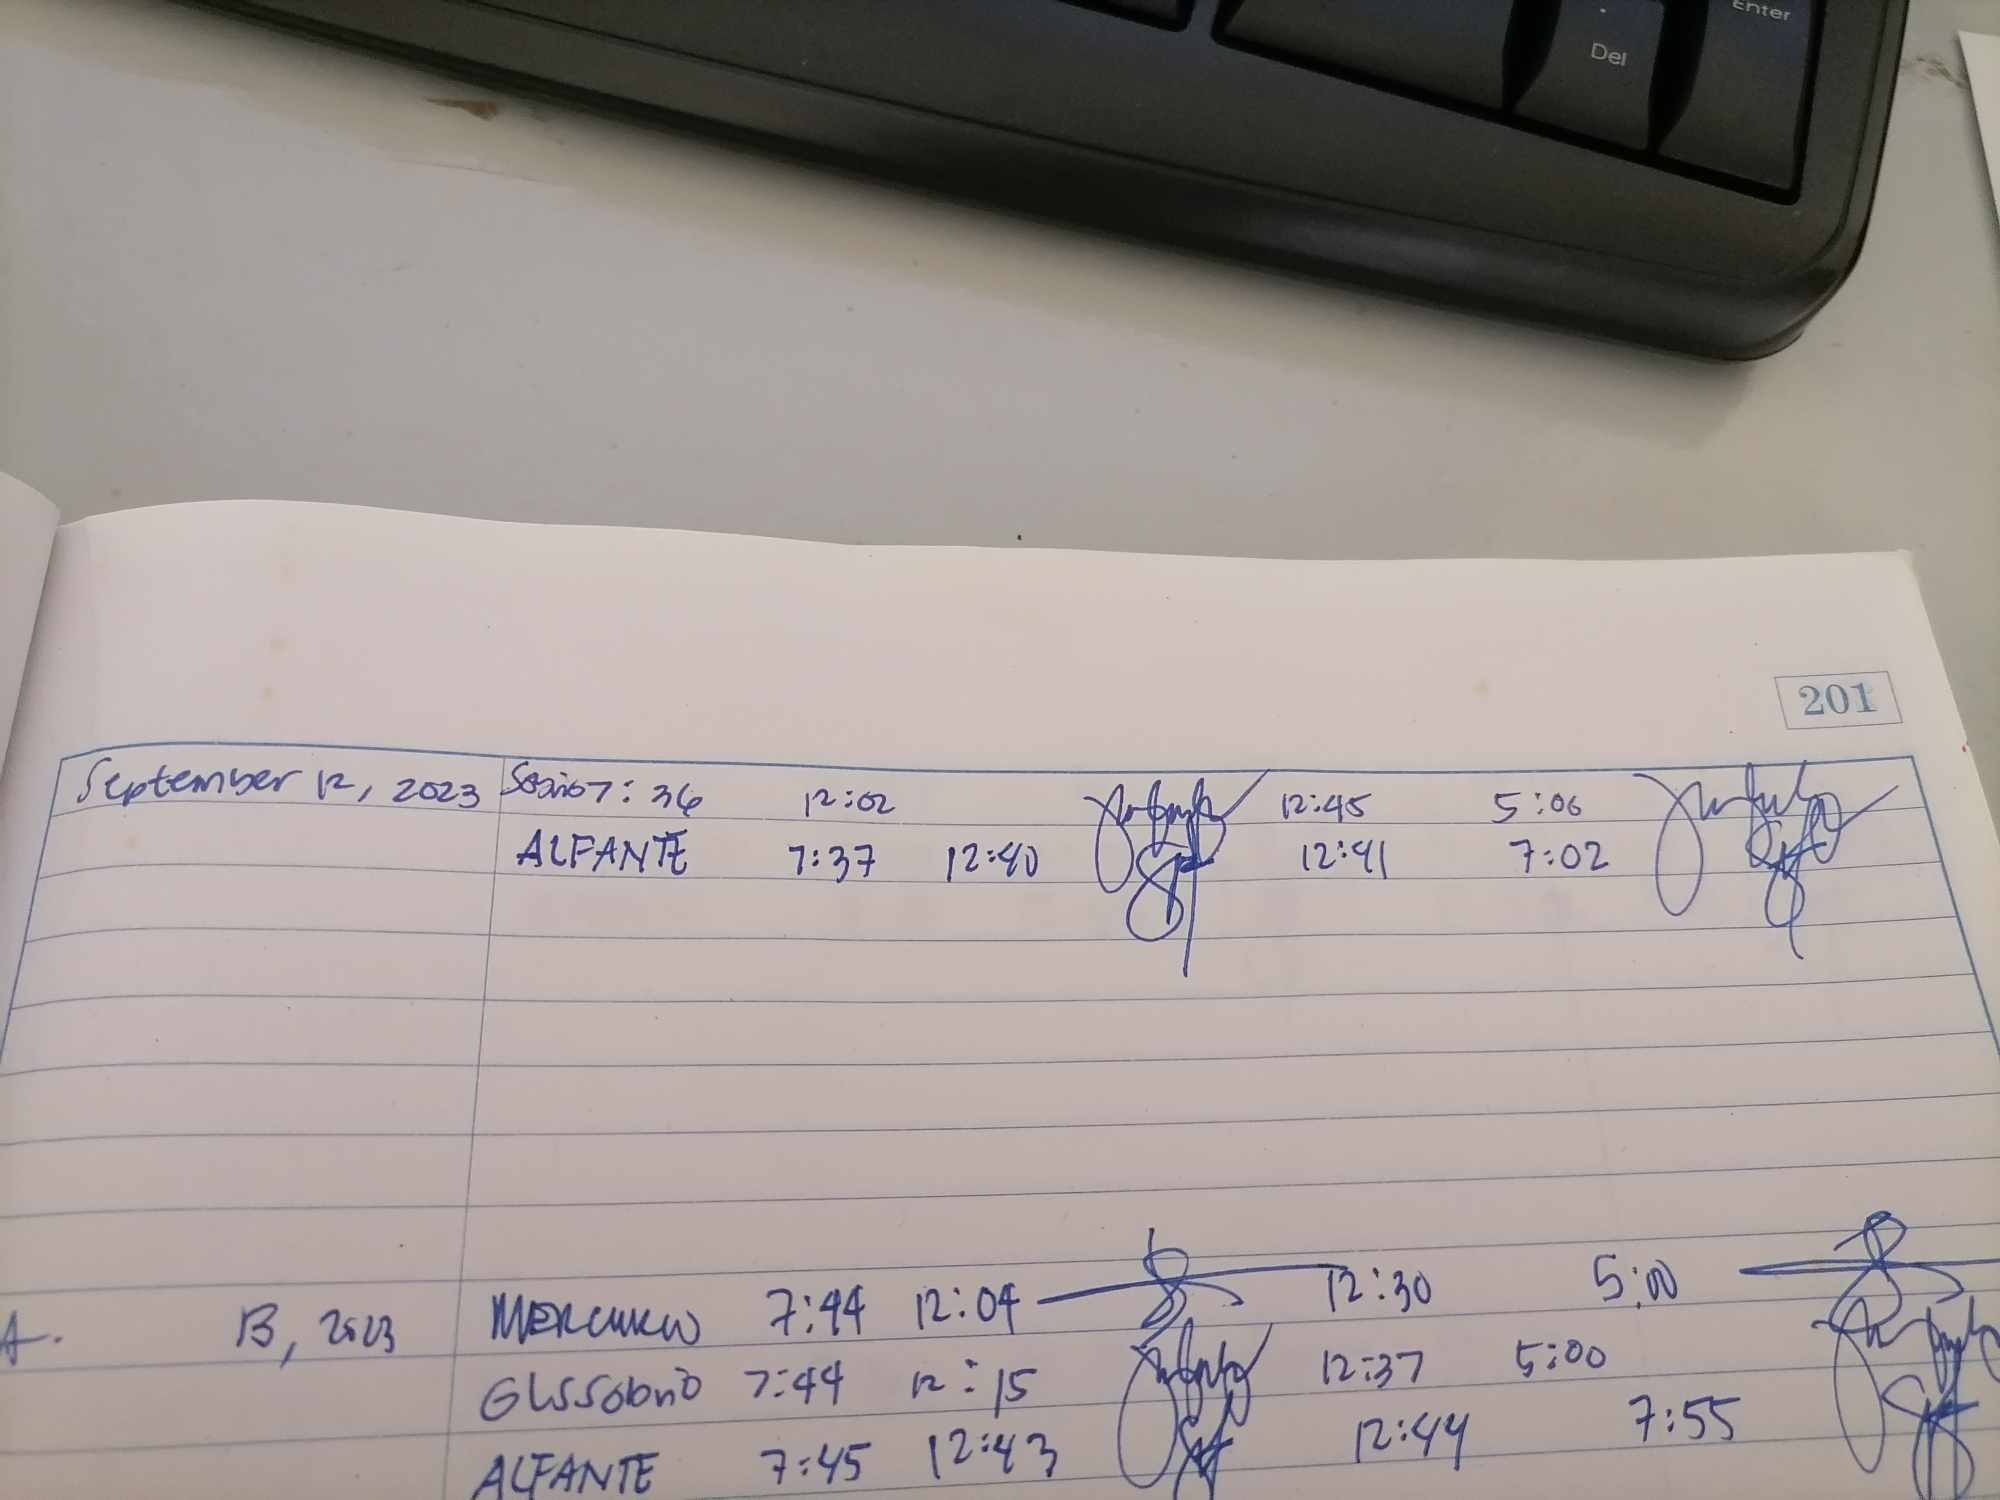 Enter
Del
201
September 12, 2023 7:36 12:02 12:45 5:06
ALFANTE 7:37 12:40 12:41 7:02
13, 2023 MERCURIO 7:44 12:04 12:30 5:00
7:44 12:15 12:37 5:00
ALFANTE 7:45 12:43 12:44 7:55